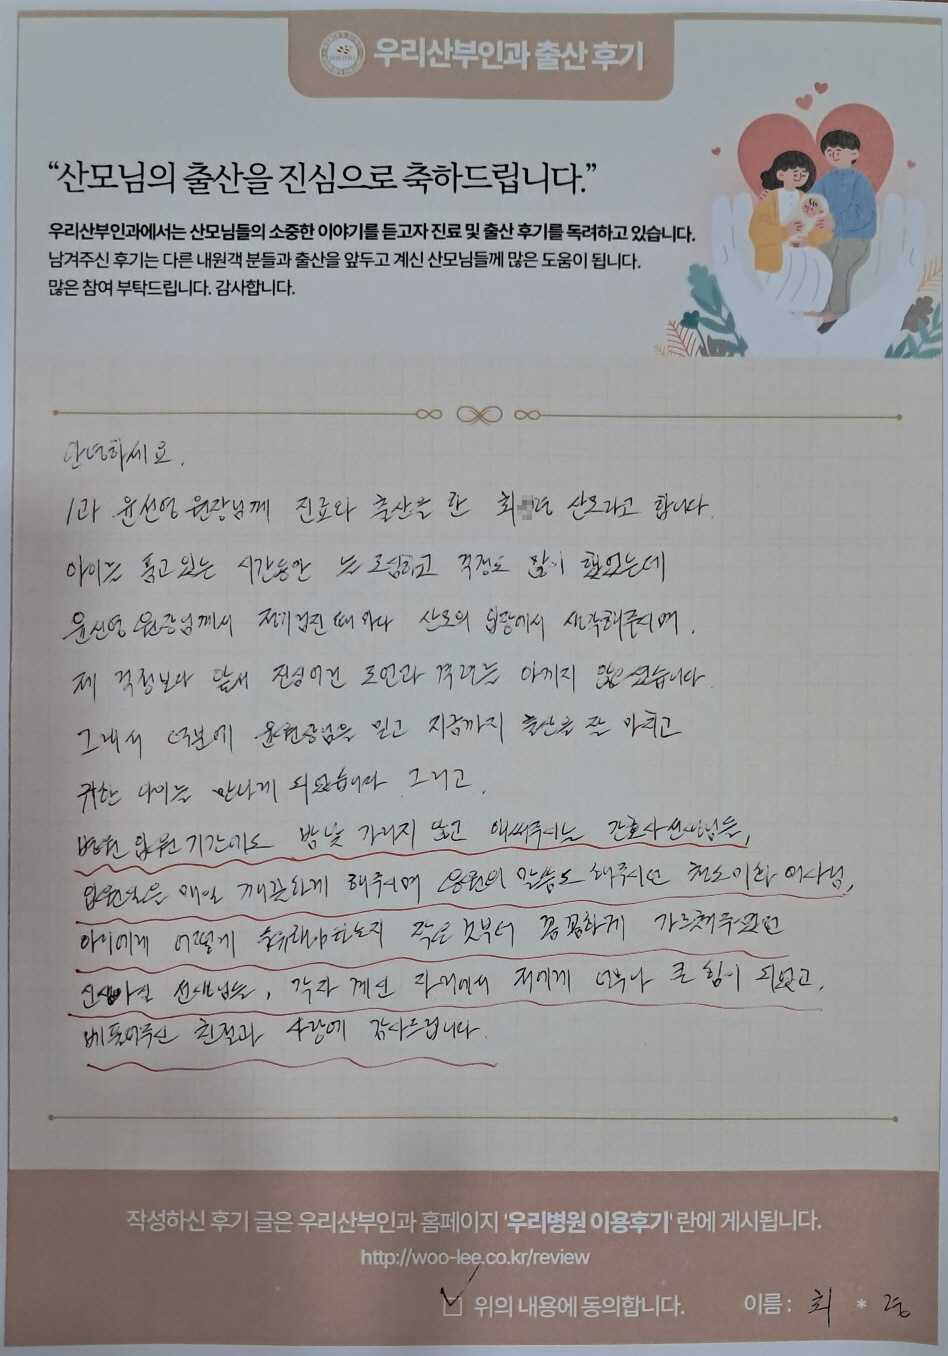 우리산부인과 출산 후기
“산모님의 출산을 진심으로 축하드립니다.”
우리산부인과에서는 산모님들의 소중한 이야기를 듣고자 진료 및 출산 후기를 독려하고 있습니다.
남겨주신 후기는 다른 내원객 분들과 출산을 앞두고 계신 산모님들께 많은 도움이 됩니다.
많은 참여 부탁드립니다. 감사합니다.
안녕하세요.
1과 윤선영 원장님께 진료와 출산을 한 산모라고 합니다.
아이를 품고 있는 시간동안 늘 조심하고 걱정도 많이 했었는데
윤선영 원장님께서 정기검진때마다 산모의 입장에서 생각해주시며,
제 걱정보다 앞서 진심어린 조언과 격려를 아끼지 않으셨습니다.
그래서 덕분에 믿고 지금까지 출산을 잘 마치고
귀한 아이를 만나게 되었습니다. 그리고,
병원 입원 기간에도 밤낮 가리지 않고 애써주시는 간호사선생님들,
입원실을 매일 깨끗하게 해주시며 응원의 말씀도 해주시던 청소미화 여사님,
아이에게 어떻게 수유해야하는지 작은 것부터 꼼꼼하게 가르쳐주셨던
신생아실 선생님들, 각자 계신 자리에서 저에게 너무나 큰 힘이 되었고,
베풀어주신 친절과 사랑에 감사드립니다.
작성하신 후기 글은 우리산부인과 홈페이지 '우리병원 이용후기' 란에 게시됩니다.
http://woo-lee.co.kr/review
위의 내용에 동의합니다. 이름 : *